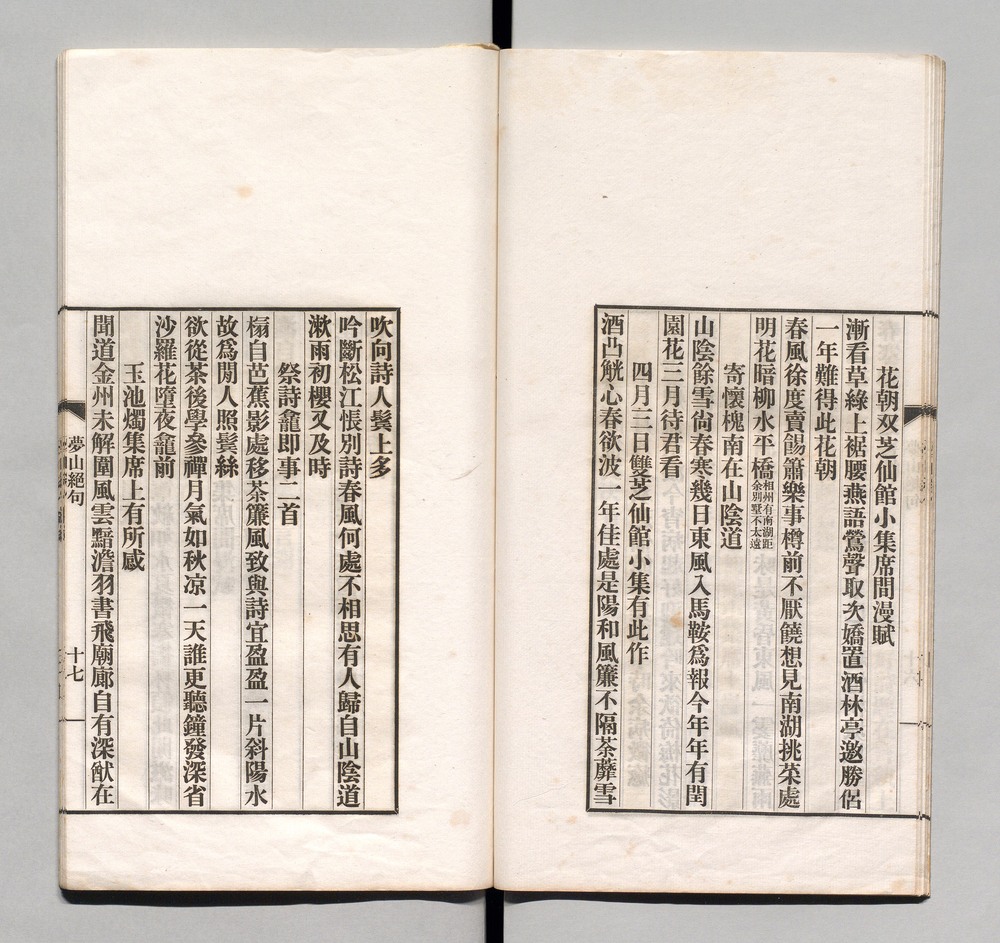 花朝双芝仙館小集席間漫賦
漸看草綠上裾腰燕語鶯聲取次嬌置酒林亭邀勝侶
一年難得此花朝
春風徐度賣餳簫樂事樽前不厭饒想見南湖挑菜處
明花暗柳水平橋相州有南湖距余別墅不太遠
寄懷槐南在山陰道
山陰餘雪尙春寒幾日東風入馬鞍爲報今年年有閏
園花三月待君看
四月三日雙芝仙館小集有此作
酒凸觥心春欲波一年佳處是陽和風簾不隔荼蘼雪
吹向詩人鬢上多
吟斷松江悵別詩春風何處不相思有人歸自山陰道
漱雨初櫻又及時
祭詩龕即事二首
槅自芭蕉影處移茶簾風致與詩宜盈盈一片斜陽水
故爲閒人照鬢絲
欲從茶後學參禪月氣如秋凉一天誰更聽鐘發深省
沙羅花墮夜龕前
玉池燭集席上有所感
聞道金州未解圍風雲黯澹羽書飛廟廊自有深猷在
夢山絕句
十七